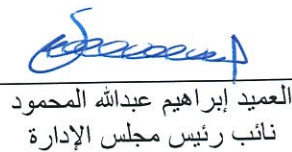 العميد إبراهيم عبدالله المحمود
نائب رئيس مجلس الإدارة